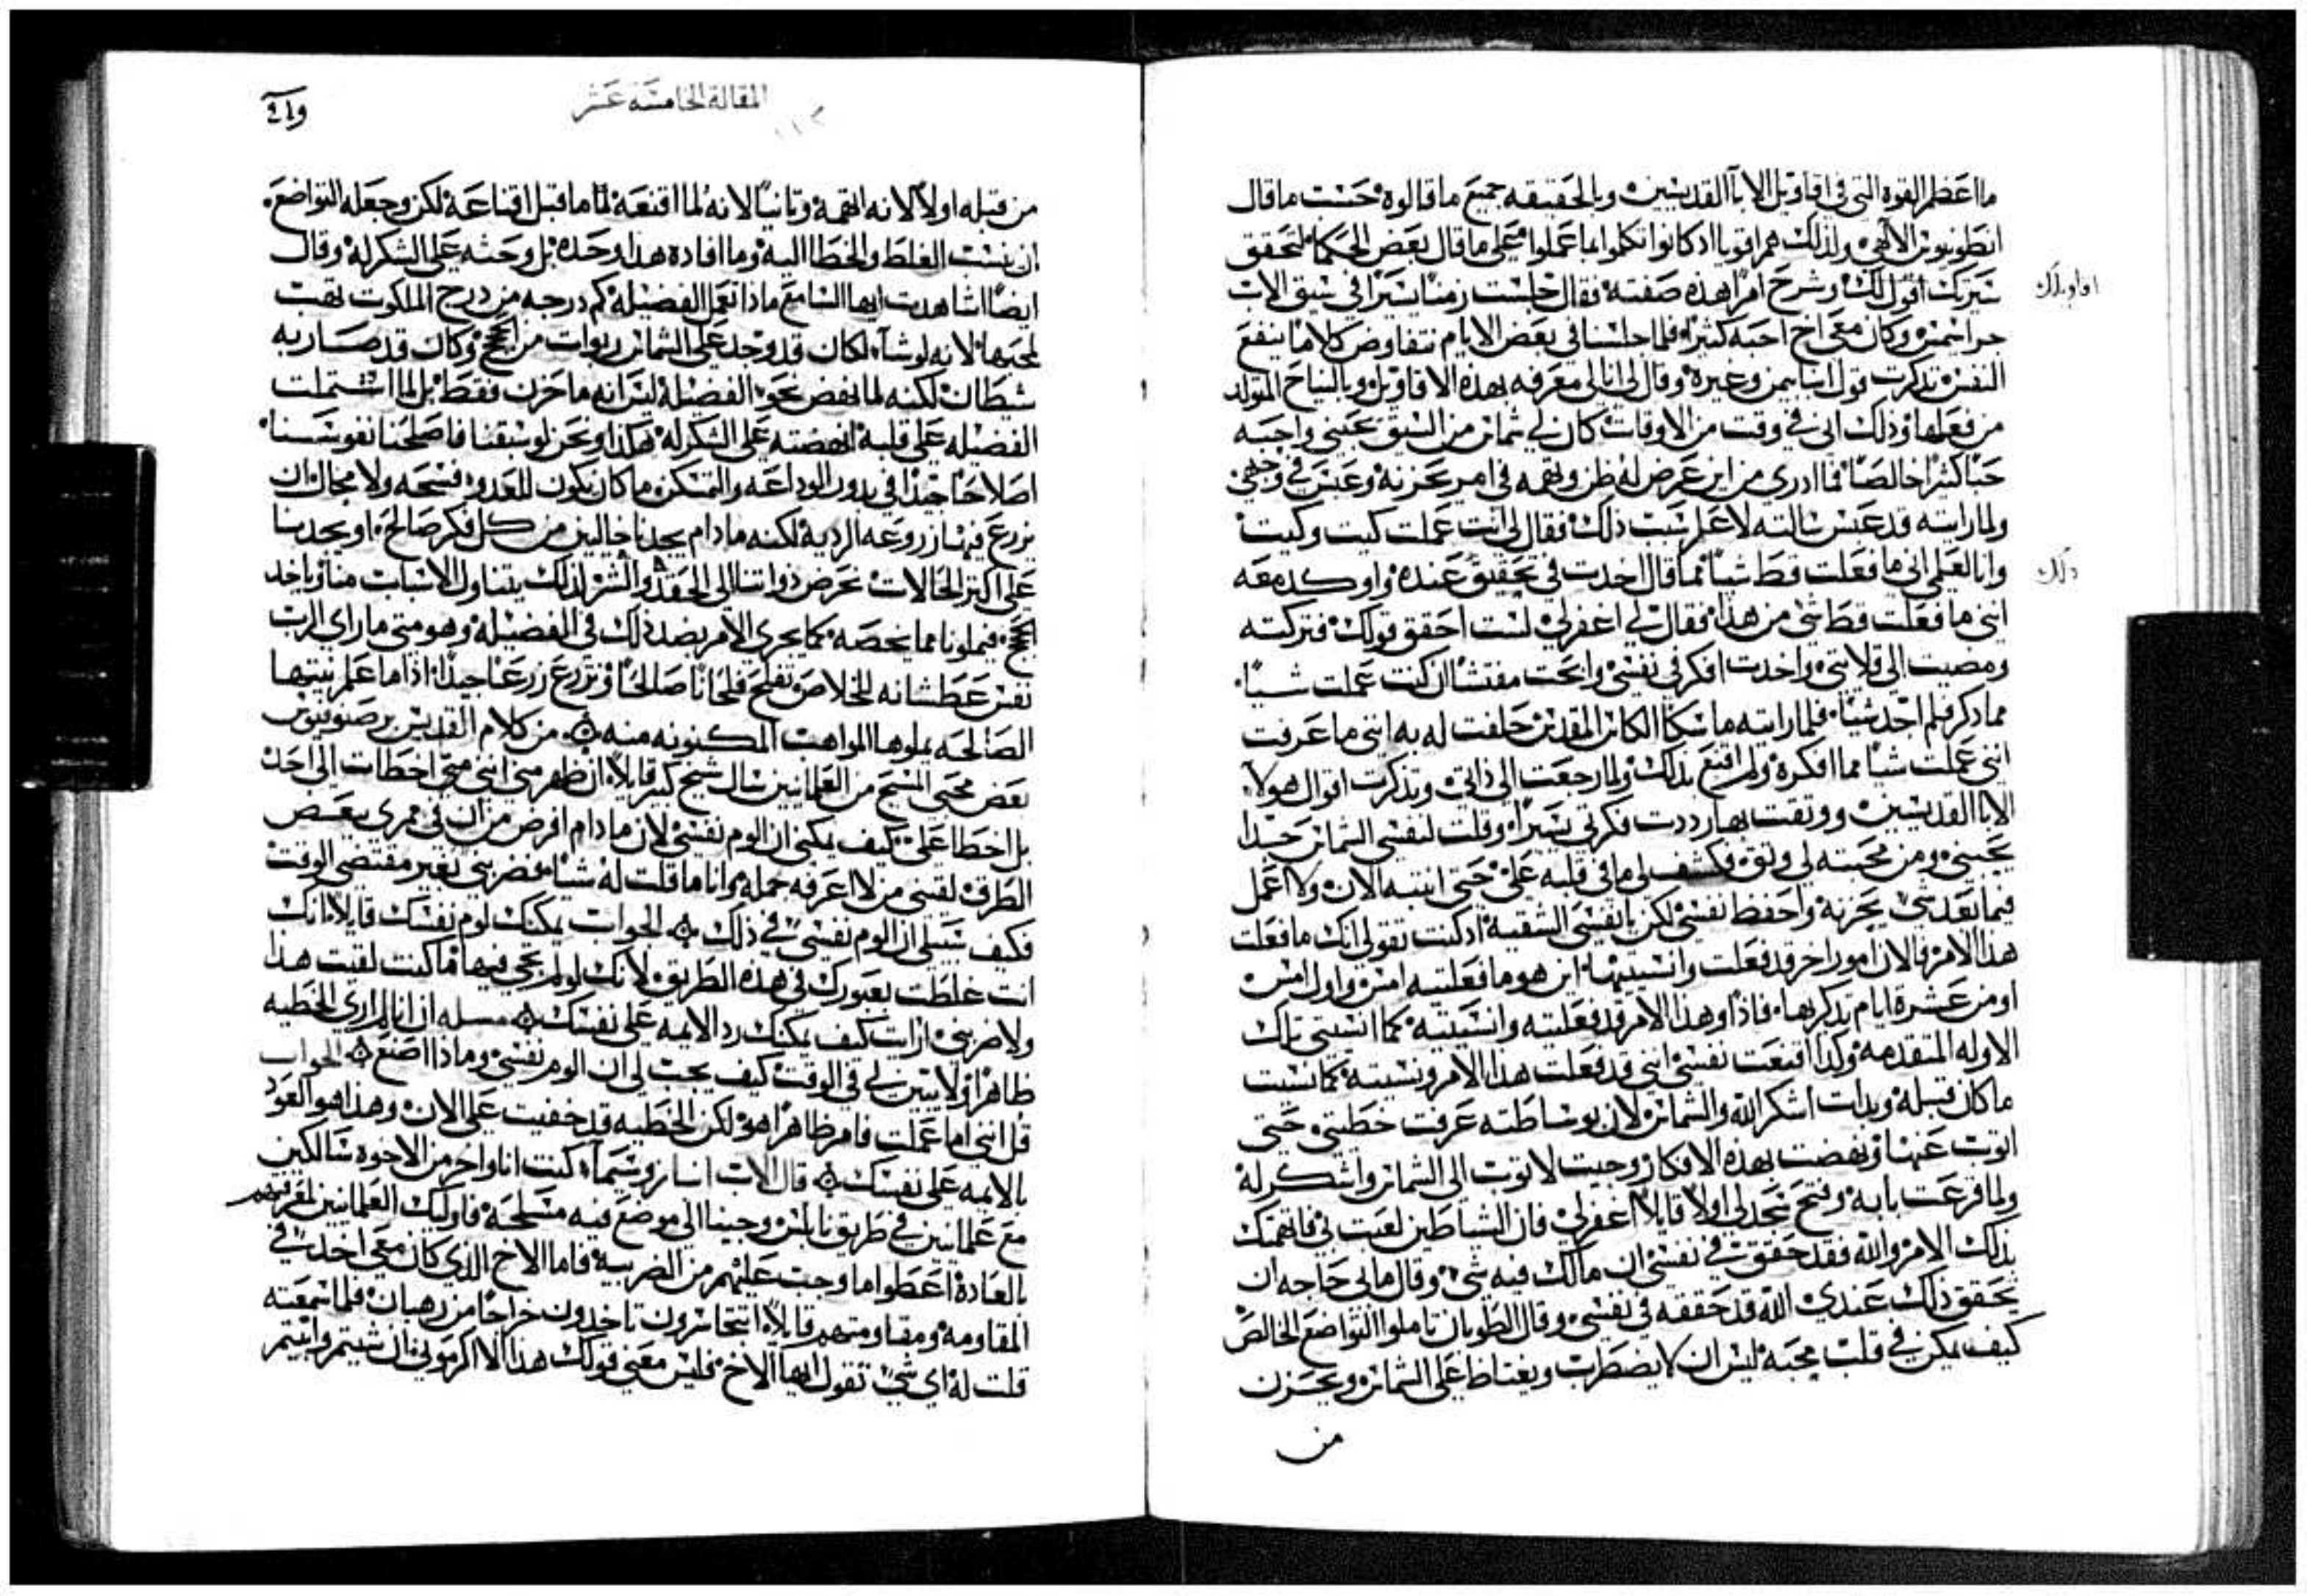 ما اعظم القوه التي في اقاويل الابآ القديسين وبالحقيقه جميع ما قالوه حسب ما قال
انطونيوس الالهي ولذلك هم اقويا اذ كانوا تكلموا بما عملوا على ما قال بعض الحكما لتحقق
سيرتك أقول لك وشرح امرا هذه صفته فقال جلست زمنا يسيرا في سيق الاب
جراسيمس وكان معي اخ احبه كثيرا فلما جلسنا في بعض الايام نتفاوض كلاما ينفع
النفس تذكرت قول انبا بيمن وغيره وقال لي انا لي معرفه بهذه الاقاويل وبالنياح المتولد
من فعلها وذلك اني في وقت من الاوقات كان لي شماس من السيق يحبني واحبه
حبا كثيرا خالصا فما ادري من اين عرض له ظن وتهمه في امر يحزنه وعبس في وجهي
ولما رايته قد عبس سالته لاعلم سبب ذلك فقال لي انت عملت كيت وكيت
وانا لعلمي اني ما فعلت قط شيا مما قال اخدت في تحقيق عنده واوكد معه
انني ما فعلت قط شي من هذا فقال لي اغفر لي لست احقق قولك فتركته
ومضيت الى قلايتي واخدت افكر في نفسي وابحث مفتشا ان كنت عملت شيا
مما ذكر فلم اجد شيا فلما رايته ماسكا الكاس المقدس حلفت له به انني ما عرفت
انني عملت شيا مما افكره ولم اقنع بذلك ولما رجعت الى ذاتي وتذكرت اقوال هولآ
الابا القديسين ووثقت بها رددت فكرتي يسيرا وقلت لنفسي الشماس جدا
يحبني ومن محبته لي وثق وكشف لي ما في قلبه علي حتى انتبه الان ولا اعمل
فيما بعد شي يحزنه واحفظ نفسي لكن يا نفسي الشقيه اذ كنت تقولي انك ما فعلت
هذا الامر فالان امورا اخر قد فعلت وانسيتيها اين هو ما فعلتيه امس واول امس
او من عشرة ايام تذكريها فاذا وهذا الامر قد فعلتيه وانسيتيه كما انسيتي تلك
الاوله المتقدمه وكدا اقنعت نفسي انني قد فعلت هذا الامر ونسيته كما نسيت
ما كان قبله وبدات اشكر الله والشماس لان بوساطته عرفت خطيتي حتى
اتوب عنها ونهضت بهذه الافكار وجيت لاتوب الى الشماس واشكر له
ولما قرعت بابه وفتح سجد لي اولا قايلا اغفر لي فان الشياطين لعبت بي فاتهمتك
بذلك الامر والله فقد حقق في نفسي ان مالك فيه شي وقال ما لي حاجه ان
تحقق ذلك عندي الله قد حققه في نفسي وقال الطوبان تاملوا التواضع الخالص
كيف يمكن في قلب محبه ليس ان لا يضطرب ويغتاظ على الشماس ويحزن
من
اقاويلك
ذلك
المقالة الخامسة عشر
من قبله اولا لانه اتهمه وثانيا لانه لما اقنعه لما ما قبل اقناعه لكن وجعله التواضع
ان ينسب الغلط والخطا اليه وما افاده هذا وحده بل وحثه على الشكر له وقال
ايضا اشاهدت ايها السامع ماذا تعمل الفضيله كم درجه من درج الملكوت تهب
لمحبها لانه لو شآ لكان قد وجد على الشماس ربوات من الحجج وكان قد صار به
شيطان لكنه لما نهض نحو الفضيلة ليس انه ما حزن فقط بل لما اشتملت
الفضيله على قلبه انهضته على الشكر له هكذا ونحن لو سبقنا فاصلحنا نفوسنا
اصلاحا جيدا في بدور الوداعه والتمسكن ما كان يكون للعدو فسحه ولا مجال ان
يزرع فينا زروعه الرديه لكنه ما دام يجدنا خاليين من كل فكر صالح او يجدنا
على اكثر الحالات نحرض ذواتنا الى الحقد والشر لذلك يتناول الاسباب منا وياخد
الحجج فيملونا مما يخصه كما يجري الامر بضد ذلك في الفضيله وهو متى ما راى الرب
نفس عطشانه للخلاص وتفلح فلحانا صالحا وتزرع زرعا جيدا اذا ما علم نيتها
الصالحه يملوها المواهب المكنونه منه من كلام القديس برصنوفيوس
بعض محبي المسيح من العلمانيين سال شيخ كبير قايلا ان ظهر مني انني متى اخطات الى احد
بل اخطا علي كيف يمكني ان الوم نفسي لان ما دام افرض من ان في ممري ببعض
الطرق لقيني من لا اعرفه جمله وانا ما قلت له شيا فضربني بغير مقتضى الوقت
فكيف سبيلي ان الوم نفسي في ذلك الجواب يمكنك لوم نفسك قايلا انك
انت غلطت بعبورك في هذه الطريق لانك لو لم تجي فيها ما كنت لقيت هذا
ولا ضربني ارايت كيف يمكنك رد الايمه على نفسك مسله ان انا لم ارى الخطيه
ظاهرا ولا يتبين لي في الوقت كيف يجب لي ان الوم نفسي وماذا اصنع الجواب
قل انني اما عملت فامر ظاهر هو لكن الخطيه قد خفيت على الان وهذا هو العود
بالايمه على نفسك قال الاب انبا زوسيمآ كنت انا واخر من الاخوه سالكين
مع علمانيين في طريق نابلس وجينا الى موضع فيه مسلحه فاوليك العلمانيين لمعرفتهم
بالعادة اعطوا ما وجب عليهم من الضريبه فاما الاخ الذي كان معي اخد في
المقاومه ومقاومتهم قايلا اتتجاسرون تاخدون خراجا من رهبان فلما سمعته
قلت له اي شي تقول ايها الاخ فليس معنى قولك هذا الا اكرموني فان شيتم وابيتم